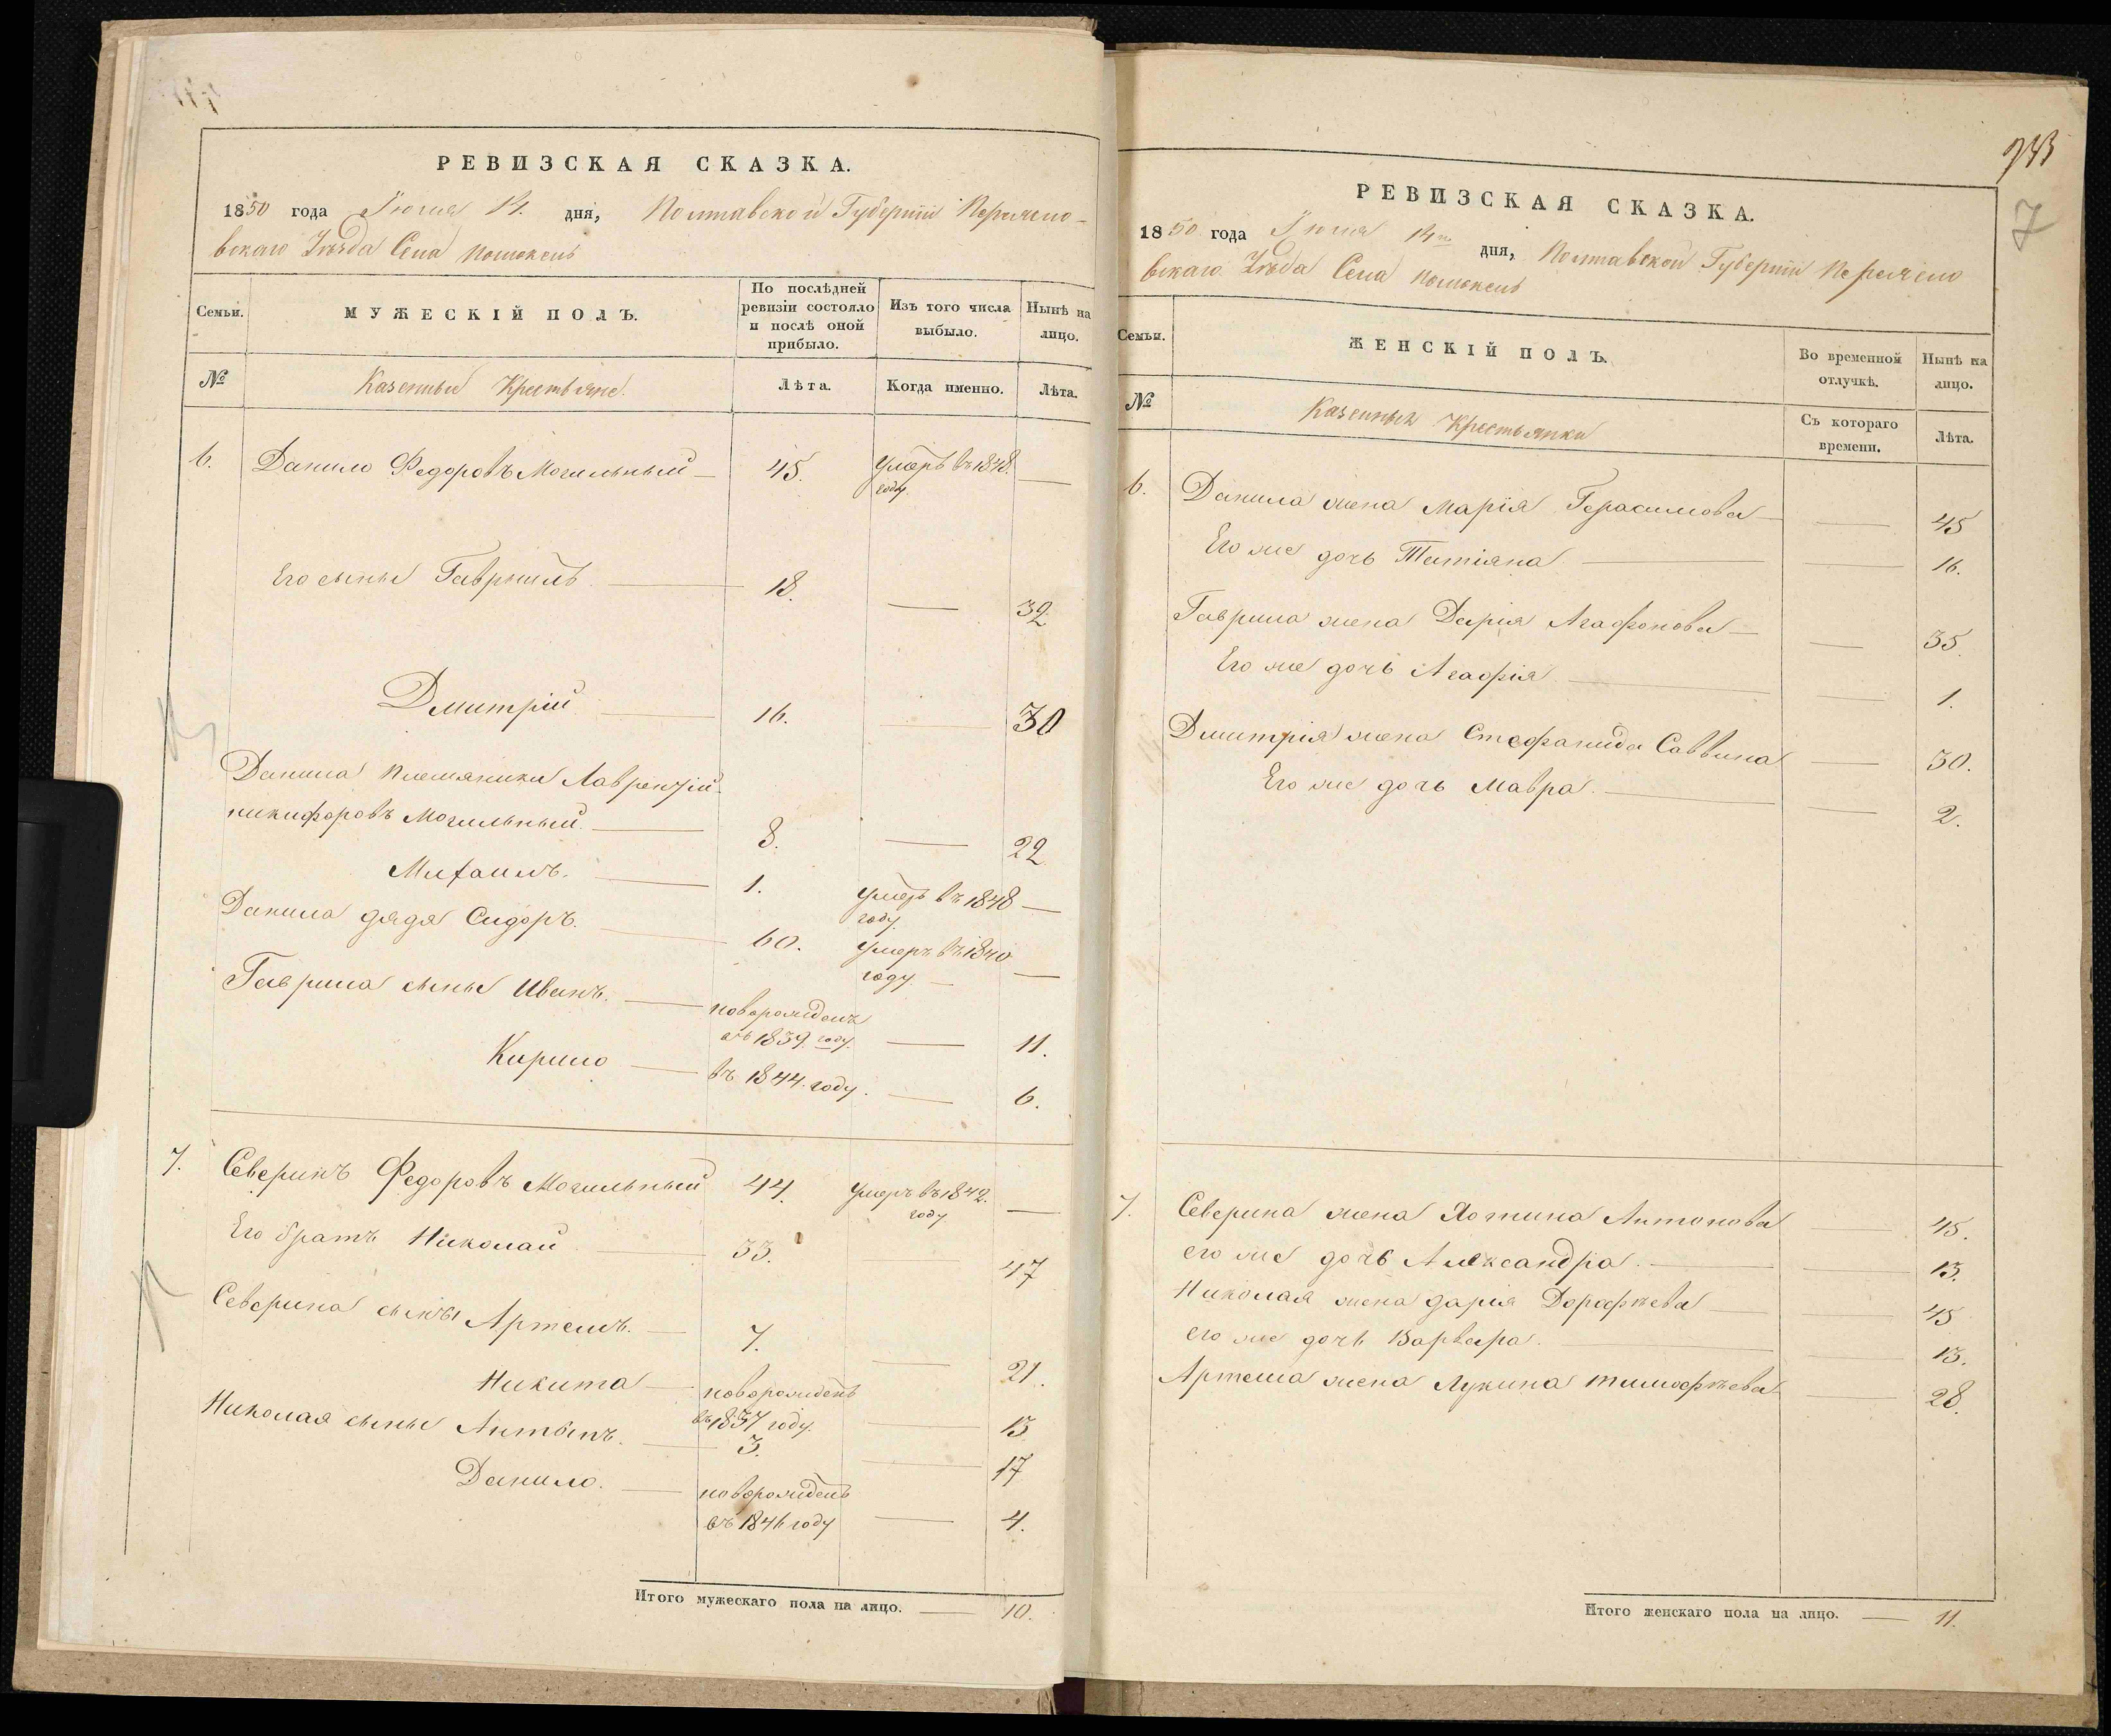 РЕВИЗСКАЯ СКАЗКА.
1850 года Іюня 14. дня, Полтавской Губерніи Переясло-
вскаго Уѣзда Села Помоклей
Семьи.
МУЖЕСКІЙ ПОЛЪ.
По послѣдней ревизіи состояло и послѣ оной прибыло.
Изъ того числа выбыло.
Нынѣ на лицо.
№
Казенные Крестьяне.
Лѣта.
Когда именно.
Лѣта.
6. Данило Федоровъ Могильный — 45. Умеръ въ 1848. году. —
Его сыны Гаврыилъ. — 18. — 32
Дмитрій — 16. — 30
Данила племяники Лаврентій
никифоровъ Могильный. — 8. — 22
Михаилъ. — 1. умеръ въ 1848 году. —
Данила дядя Сидоръ. — 60. умеръ въ 1840 году. —
Гаврила сыны Иванъ. — новорожденъ въ 1839. году. — 11.
Кирило — въ 1844. году. — 6.
7. Северинъ Федоровъ Могильный 44. умеръ въ 1842. году —
Его братъ Николай — 33. — 47
Северина сыны Артемъ. — 7. — 21.
Никита — новорожденъ въ 1837 году. — 13
Николая сыны Антонъ. — 3. — 17
Данило. — новорожденъ въ 1846 году — 4.
Итого мужескаго пола на лицо. — 10.
7
РЕВИЗСКАЯ СКАЗКА.
1850 года Іюня 14го дня, Полтавской Губерніи Переясло
вскаго Уѣзда Села Помоклей
Семьи.
ЖЕНСКІЙ ПОЛЪ.
Во временной отлучкѣ.
Нынѣ на лицо.
№
Казенныя Крестьянки
Съ котораго времени.
Лѣта.
6. Данила жена Марія Герасимова — — 45
Его же дочь Татіяна — — 16.
Гаврила жена Дарія Агафонова — — 35.
Его же дочь Агафія — — 1.
Дмитрія жена Стефанида Саввина — 30.
Его же дочь Мавра. — — 2.
7. Северина жена Хотина Антонова — 45.
его же дочь Александра. — — 13.
Николая жена дарія Дорофѣева — — 45
его же дочь Варвара. — — 13.
Артема жена Лукина тимофѣева — 28.
Итого женскаго пола на лицо. — 11.